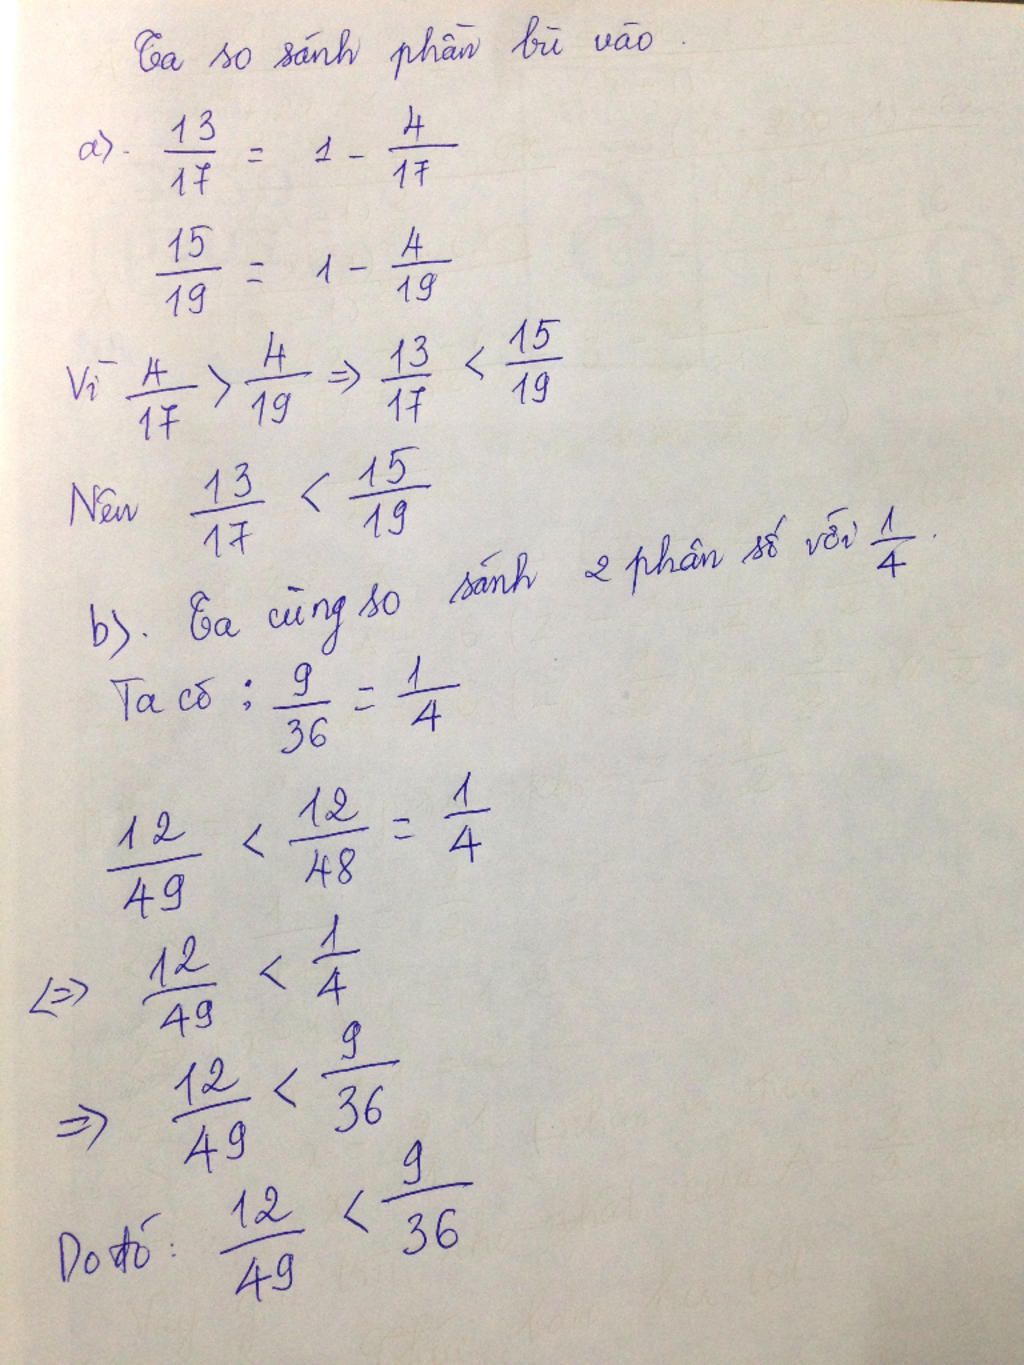 Ta so sánh phần bù vào.
a). 13/17 = 1 - 4/17
15/19 = 1 - 4/19
Vì 4/17 > 4/19 => 13/17 < 15/19
Nên 13/17 < 15/19
b). Ta cùng so sánh 2 phân số với 1/4.
Ta có : 9/36 = 1/4
12/49 < 12/48 = 1/4
<=> 12/49 < 1/4
=> 12/49 < 9/36
Do đó: 12/49 < 9/36